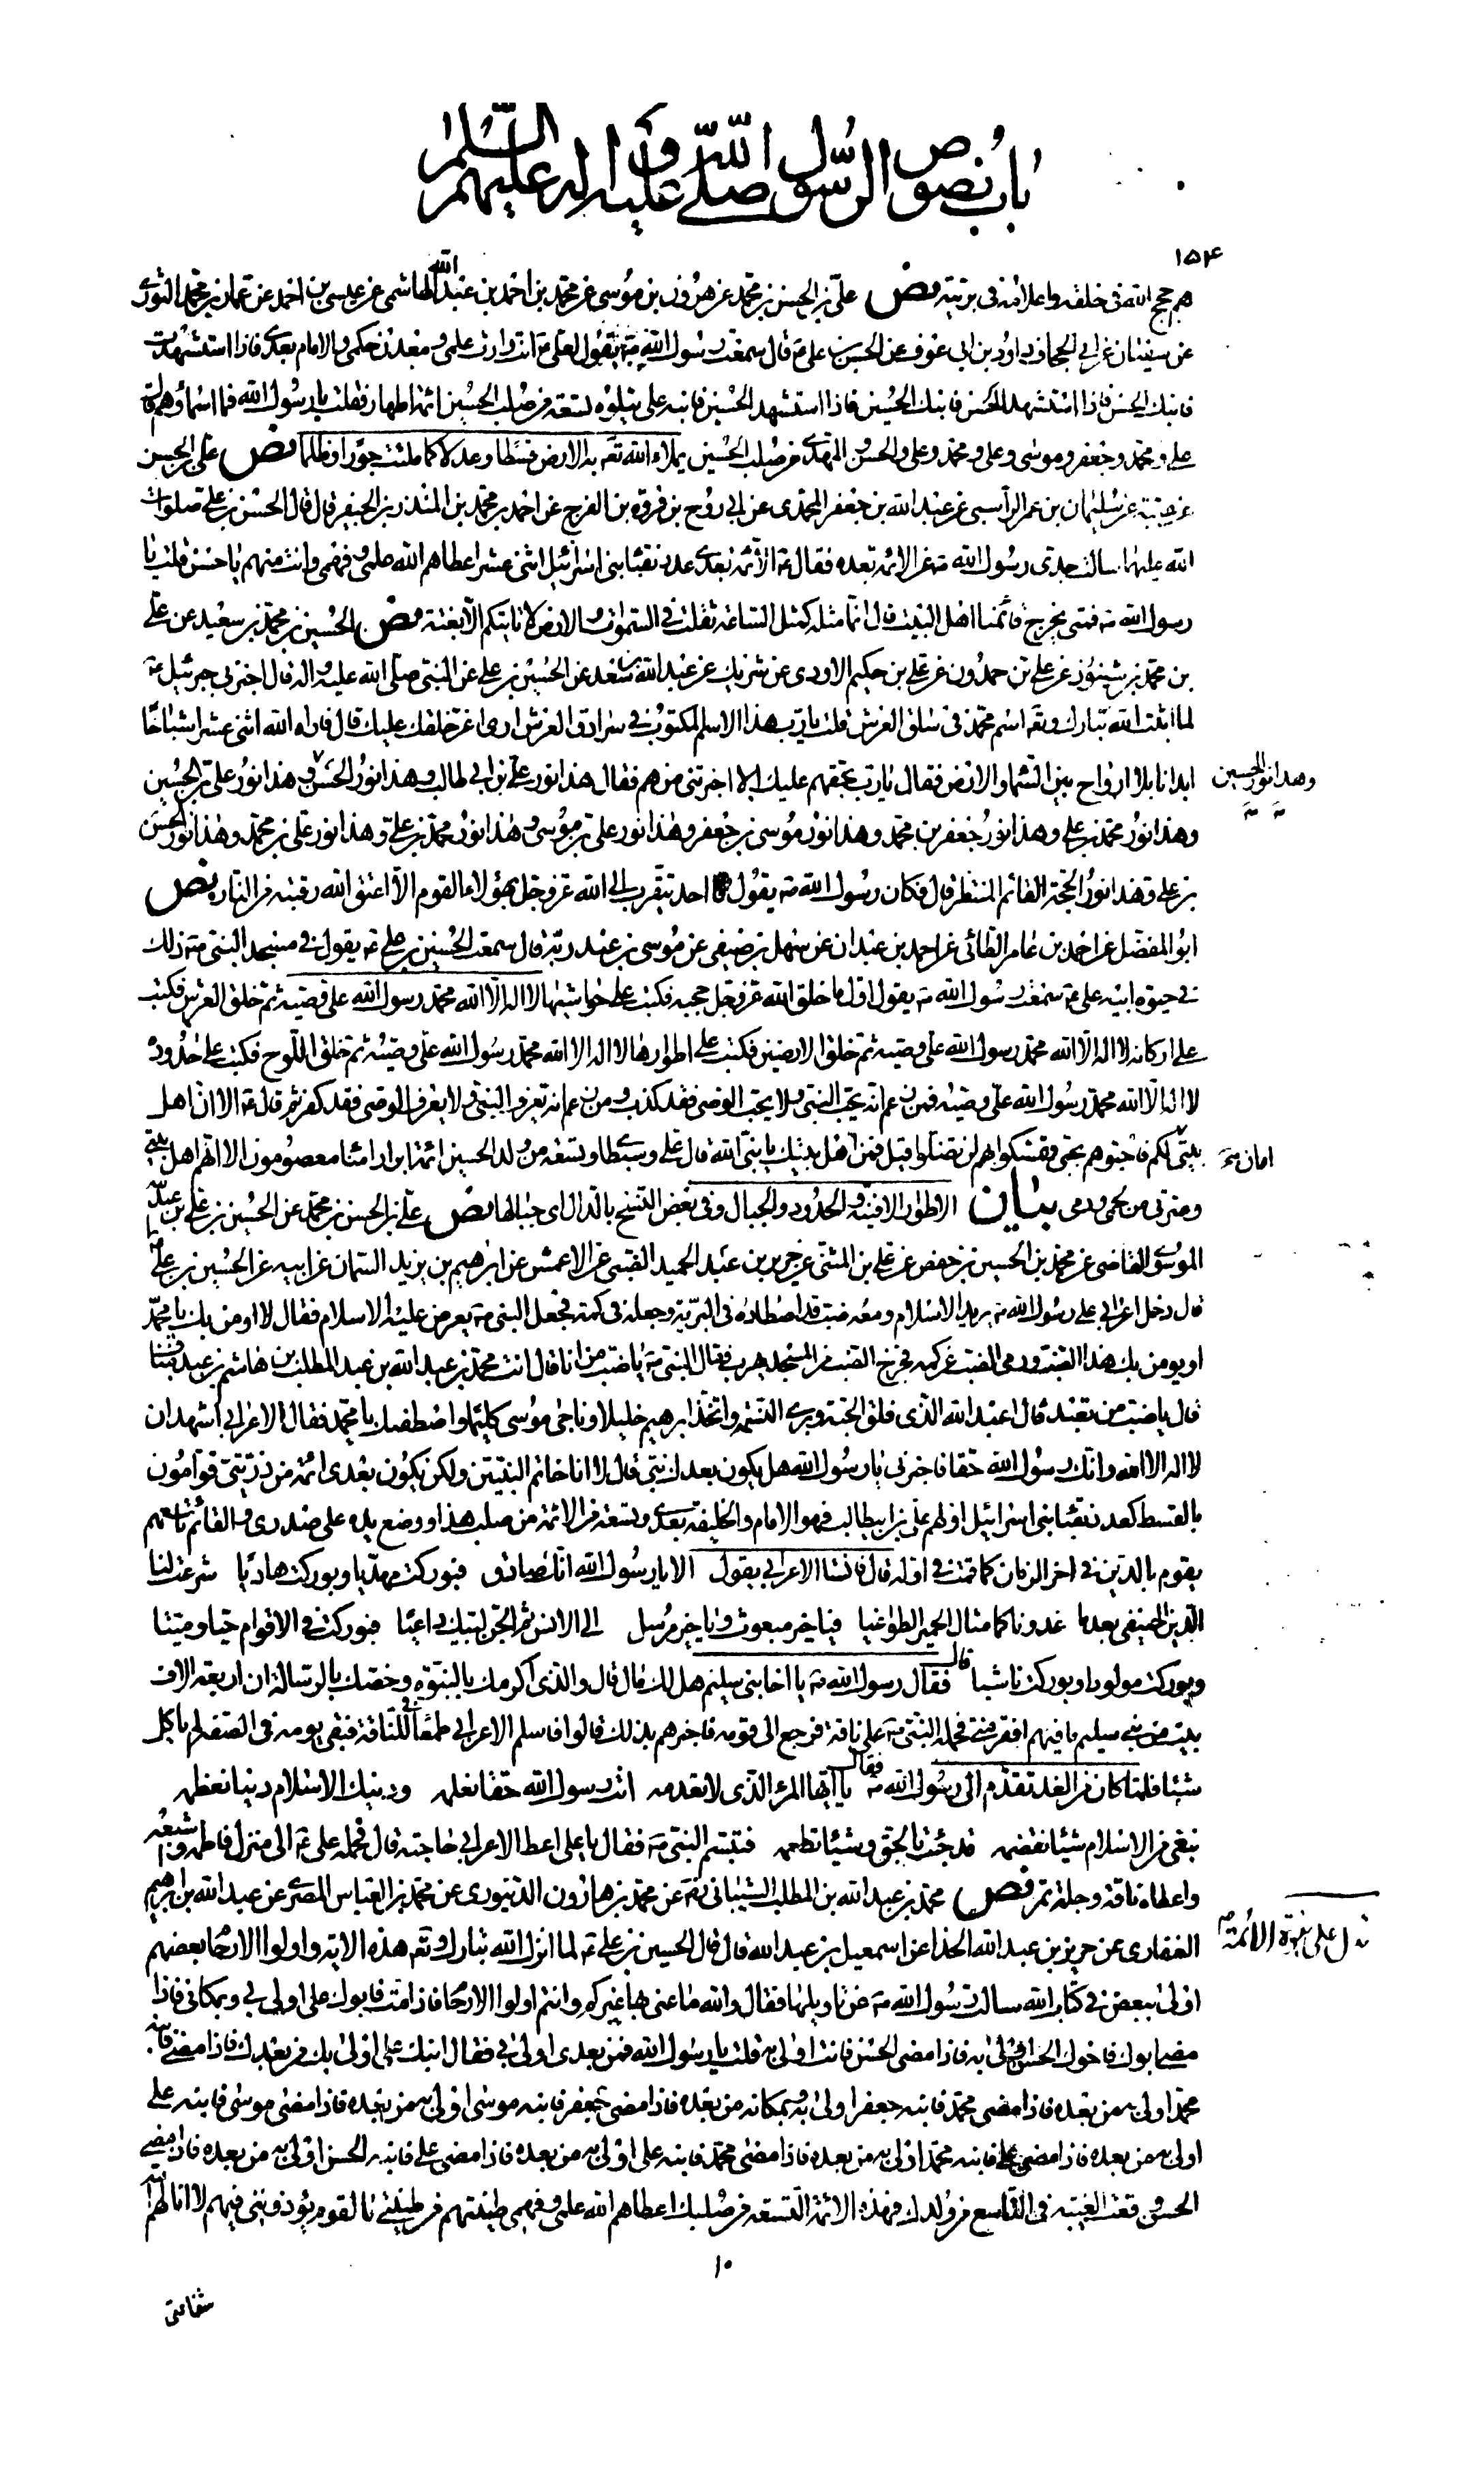 باب نصوص الرسول صلى الله عليه و اله عليهم السلام
۱۵۴
هم حجج الله فى خلقه و اعلامه فى بريته نص على بن الحسن بن محمد عن هرون بن موسى عن محمد بن احمد بن عبد الله الهاشمى عن عيسى بن احمد عن عمار بن محمد الثورى
عن سفيان عن ابى الجحاف داود بن ابى عوف عن الحسن بن على ع قال سمعت رسول الله ص يقول لعلى ع انت وارث علمى و معدن حكمى و الامام بعدى فاذا استشهدت
فابنك الحسن فاذا استشهد الحسن فابنك الحسين فاذا استشهد الحسين فابنه على يتلوه تسعة من صلب الحسين ائمة اطهار فقلت يا رسول الله فما اسماؤهم قال
على و محمد و جعفر و موسى و على و محمد و على و الحسن و المهدى من صلب الحسين يملاء الله تع به الارض قسطا و عدلا كما ملئت جورا و ظلما نص على بن الحسن
عن عتبة عن سليمان بن عمر الراسبى عن عبد الله بن جعفر المحمدى عن ابى روح بن فروة بن الفرج عن احمد بن محمد بن المنذر بن الجيفر قال قال الحسن بن على صلوات
الله عليهما سالت جدى رسول الله ص عن الائمة بعده فقال ع الائمة بعدى عدد نقباء بنى اسرائيل اثنى عشر اعطاهم الله علمى و فهمى و انت منهم يا حسن قلت يا
رسول الله ص فمتى يخرج قائمنا اهل البيت قال انما مثله كمثل الساعة ثقلت فى السموات و الارض لا تاتيكم الا بغتة نص الحسين بن محمد بن سعيد عن على
بن محمد بن شنبوذ عن على بن حمدون عن على بن حكيم الاودى عن شريك عن عبد الله بن سعد عن الحسين بن على عن النبى صلى الله عليه و اله قال اخبرنى جبرئيل ع
لما اثبت الله تبارك و تع اسم محمد فى ساق العرش قلت يا رب هذا الاسم المكتوب فى سرادق العرش ارى اعز خلقك عليك قال فاراه الله اثنى عشر اشباحا
ابدانا بلا ارواح بين السماء و الارض فقال يا رب بحقهم عليك الا اخبرتنى من هم فقال هذا نور على بن ابى طالب و هذا نور الحسن و هذا نور على بن الحسين
و هذا نور الحسين
و هذا نور محمد بن على و هذا نور جعفر بن محمد و هذا نور موسى بن جعفر و هذا نور على بن موسى و هذا نور محمد بن على و هذا نور على بن محمد و هذا نور الحسن
بن على و هذا نور الحجة القائم المنتظر قال فكان رسول الله ص يقول ما احد تقرب الى الله عز و جل بهؤلاء القوم الا اعتق الله رقبته من النار نص
ابو المفضل عن احمد بن عامر الطائى عن احمد بن عبدان عن سهل بن صيفى عن موسى بن عبد ربه قال سمعت الحسين بن على ع يقول فى مسجد النبى ص ذلك
فى حيوة ابيه على ع سمعت رسول الله ص يقول اول ما خلق الله عز و جل حجبه فكتب على حواشيها لا اله الا الله محمد رسول الله على وصيه ثم خلق العرش فكتب
على اركانه لا اله الا الله محمد رسول الله على وصيه ثم خلق الارضين فكتب على اطوارها لا اله الا الله محمد رسول الله على وصيه ثم خلق اللوح فكتب على حدوده
لا اله الا الله محمد رسول الله على وصيه فمن زعم انه يحب النبى و لا يحب الوصى فقد كذب و من زعم انه يعرف النبى و لا يعرف الوصى فقد كفر ثم قال ع الا ان اهل
بيتى لكم فاحبوهم بحبى و تمسكوا بهم لن تضلوا قيل فمن اهل بيتك يا نبى الله قال على و سبطاى و تسعة من ولد الحسين ائمة ابرار امناء معصومون الا انهم اهل بيتى
امان خ
و عترتى من لحمى و دمى بيان الاطوار الافنية و الحدود و الجبال و فى بعض النسخ بالدال اى جبالها نص على بن الحسن بن محمد عن الحسين بن على بن عبد الله
الموسوى القاضى عن محمد بن الحسين بن حفص عن على بن المثنى عن جرير بن عبد الحميد الضبى عن الاعمش عن ابرهيم بن يزيد السمان عن ابيه عن الحسين بن على ع
قال دخل اعرابى على رسول الله ص يريد الاسلام و معه ضب قد اصطاده فى البرية و جعله فى كمه فجعل النبى ص يعرض عليه الاسلام فقال لا اومن بك يا محمد
او يومن بك هذا الضب و رمى الضب عن كمه فخرج الضب من المسجد يهرب فقال النبى ص يا ضب من انا قال انت محمد بن عبد الله بن عبد المطلب بن هاشم بن عبد مناف
قال يا ضب من تعبد قال اعبد الله الذى فلق الحبة و برى النسمة و اتخذ ابرهيم خليلا و ناجى موسى كليما و اصطفاك يا محمد فقال الاعرابى اشهد ان
لا اله الا الله و انك رسول الله حقا فاخبرنى يا رسول الله هل يكون بعدك نبى قال لا انا خاتم النبيين و لكن يكون بعدى ائمة من ذريتى قوامون
بالقسط كعدد نقباء بنى اسرائيل اولهم على بن ابيطالب فهو الامام و الخليفة بعدى و تسعة من الائمة من صلب هذا و وضع يده على صدرى و القائم تاسعهم
يقوم بالدين فى اخر الزمان كما قمت فى اوله قال فانشا الاعرابى يقول الا يا رسول الله انك صادق فبوركت مهديا و بوركت هاديا شرعت لنا
الدين الحنيفى بعدما غدونا كامثال الحمير الطواغيا فيا خير مبعوث و يا خير مرسل الى الانس ثم الجن لبيك داعيا فبوركت فى الاقوام حيا و ميتا
و بوركت مولودا و بوركت ناشيا قال فقال رسول الله ص يا اخا بنى سليم هل لك مال قال و الذى اكرمك بالنبوة و خصك بالرسالة ان اربعة الاف
بيت من بنى سليم ما فيهم افقر منى فحمله النبى ص على ناقة فرجع الى قومه فاخبرهم بذلك قالوا فاسلم الاعرابى طمعا فى الناقة فبقى يومه فى الصفة لم ياكل
شيئا فلما كان من الغد تقدم الى رسول الله ص فقال يا ايها المرء الذى لا نعدمه انت رسول الله حقا نعلمه و دينك الاسلام دينا نعظمه
نبغى من الاسلام شيئا نقضمه قد جئت بالحق و شيئا نطعمه فتبسم النبى ص فقال يا على اعط الاعرابى حاجته قال فحمله على ع الى منزل فاطمة و اشبعه
و اعطاه ناقة و جلة تمر نص محمد بن عبد الله بن المطلب الشيبانى ره عن محمد بن هارون الدينورى عن محمد بن العباس المصرى عن عبد الله بن ابرهيم
الغفارى عن حريز بن عبد الله الحذا عن اسمعيل بن عبد الله قال قال الحسين بن على ع لما انزل الله تبارك و تع هذه الاية و اولوا الارحام بعضهم
اولى ببعض فى كتاب الله سالت رسول الله ص عن تاويلها فقال و الله ما عنى بها غيركم و انتم اولوا الارحام فاذا مت فابوك على اولى بى و بمكانى فاذا
مضى ابوك فاخوك الحسن اولى به فاذا مضى الحسن فانت اولى به قلت يا رسول الله فمن بعدى اولى بى فقال ابنك على اولى بك من بعدك فاذا مضى فابنه
محمد اولى به من بعده فاذا مضى محمد فابنه جعفر اولى به و بمكانه من بعده فاذا مضى جعفر فابنه موسى اولى به من بعده فاذا مضى موسى فابنه على
اولى به من بعده فاذا مضى على فابنه محمد اولى به من بعده فاذا مضى محمد فابنه على اولى به من بعده فاذا مضى على فابنه الحسن اولى به من بعده فاذا مضى
الحسن وقعت الغيبة فى التاسع من ولدك فهذه الائمة التسعة من صلبك اعطاهم الله علمى و فهمى طينتهم من طينتى ما لقوم يؤذوننى فيهم لا انالهم الله
۱۰
شفاعتى